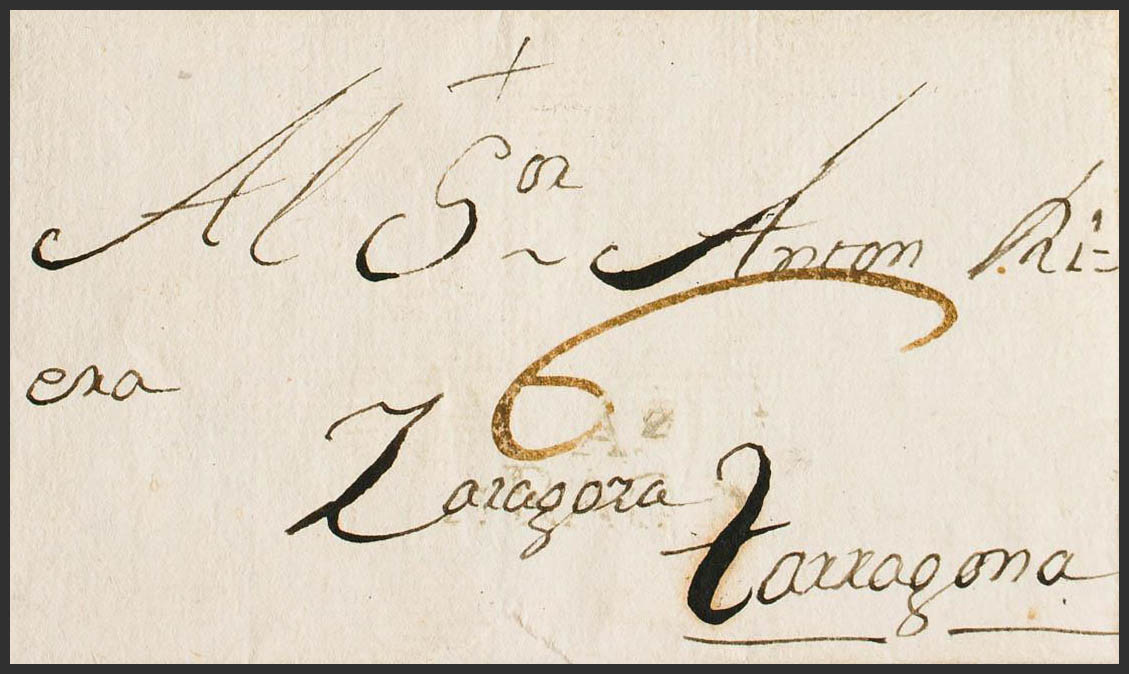 +
Al S^or Anton Ri=
era
6
Zaragoza
Tarragona